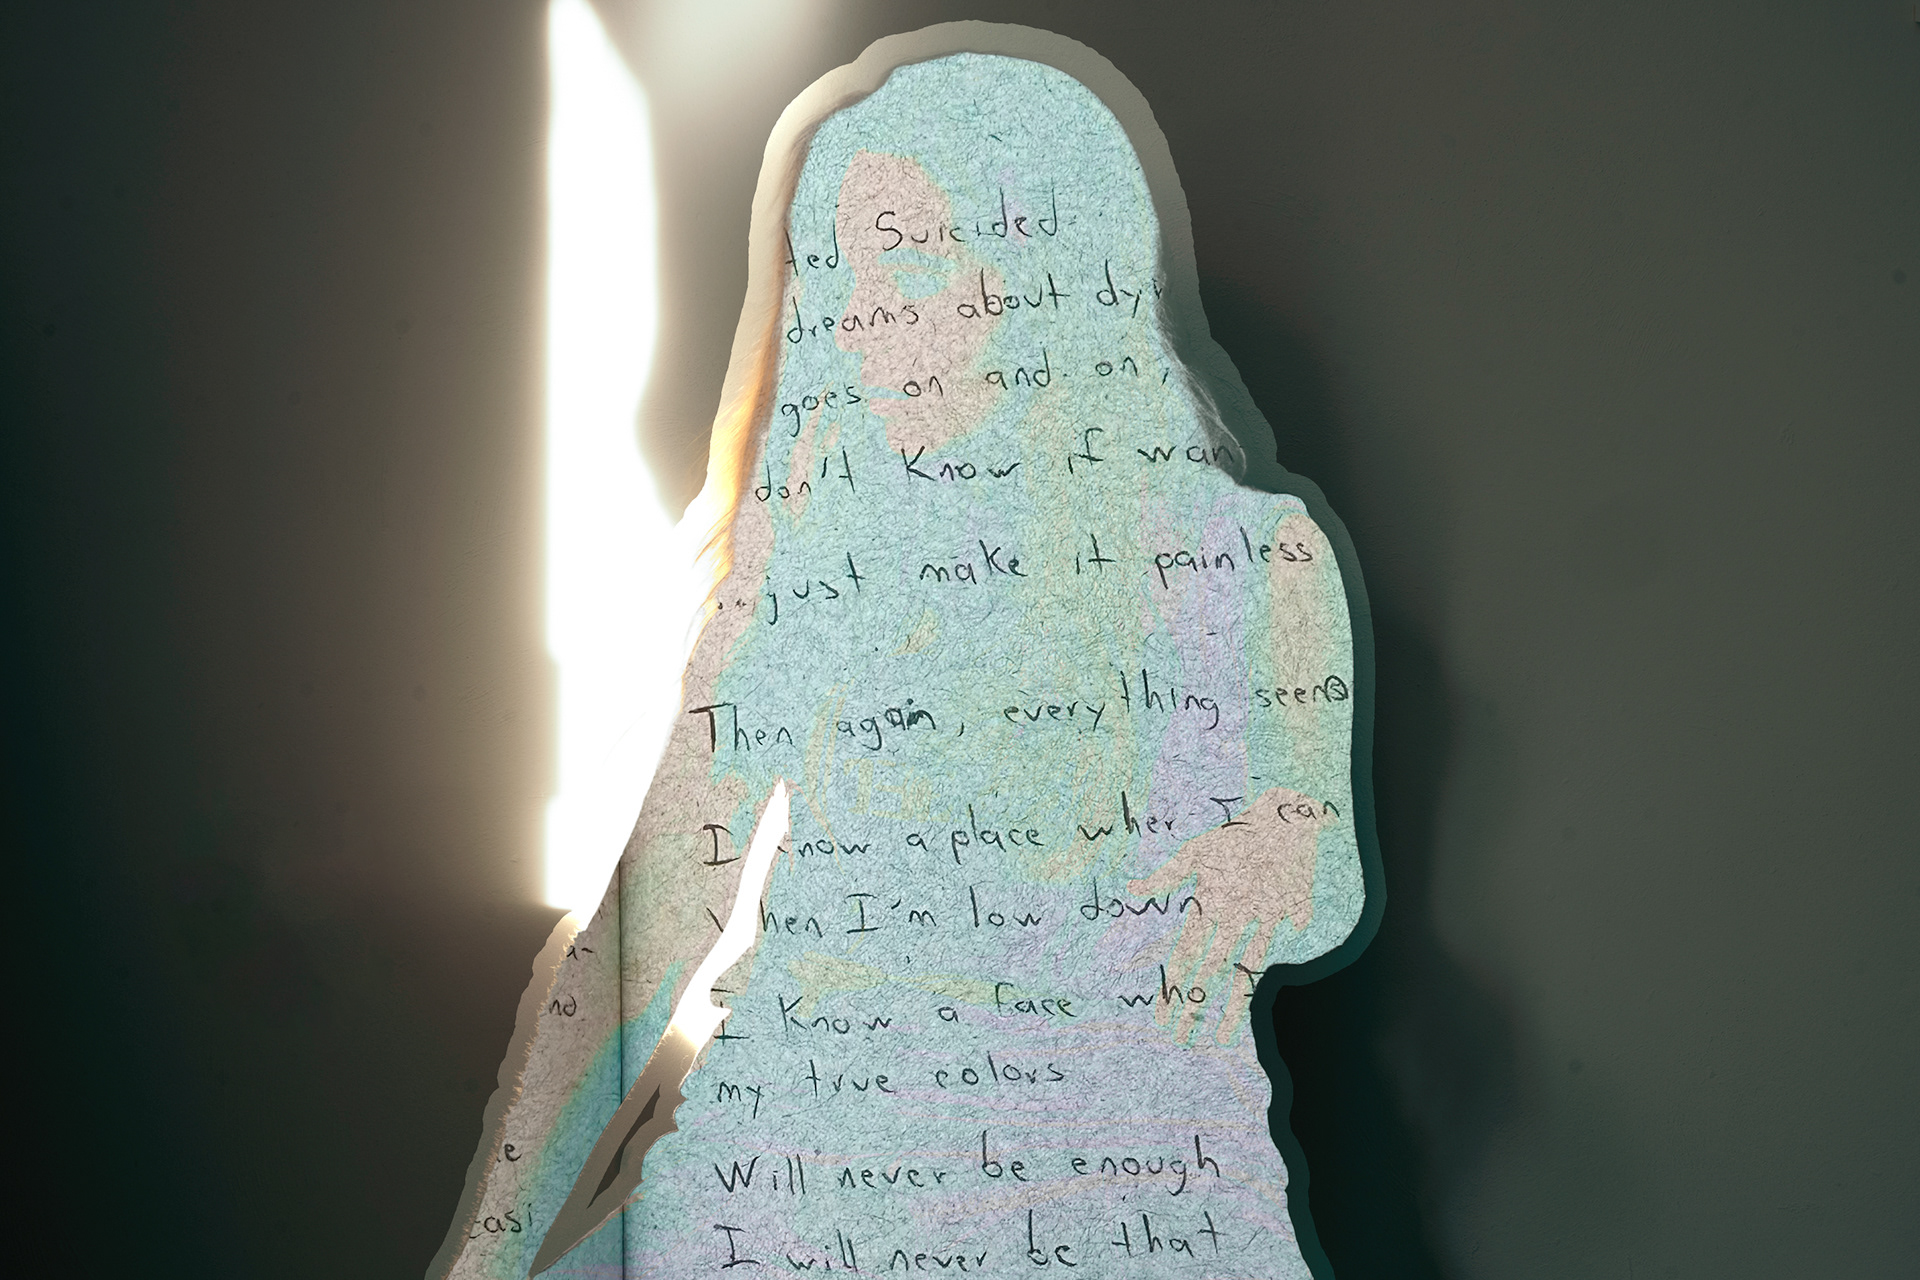 ted Suicided
dreams about dy
goes on and on,
don't know if wan
...just make it painless
Then again, everything seems
I know a place wher I can
When I'm low down
I know a face who I
my true colors
Will never be enough
I will never be that
nd
e
casi